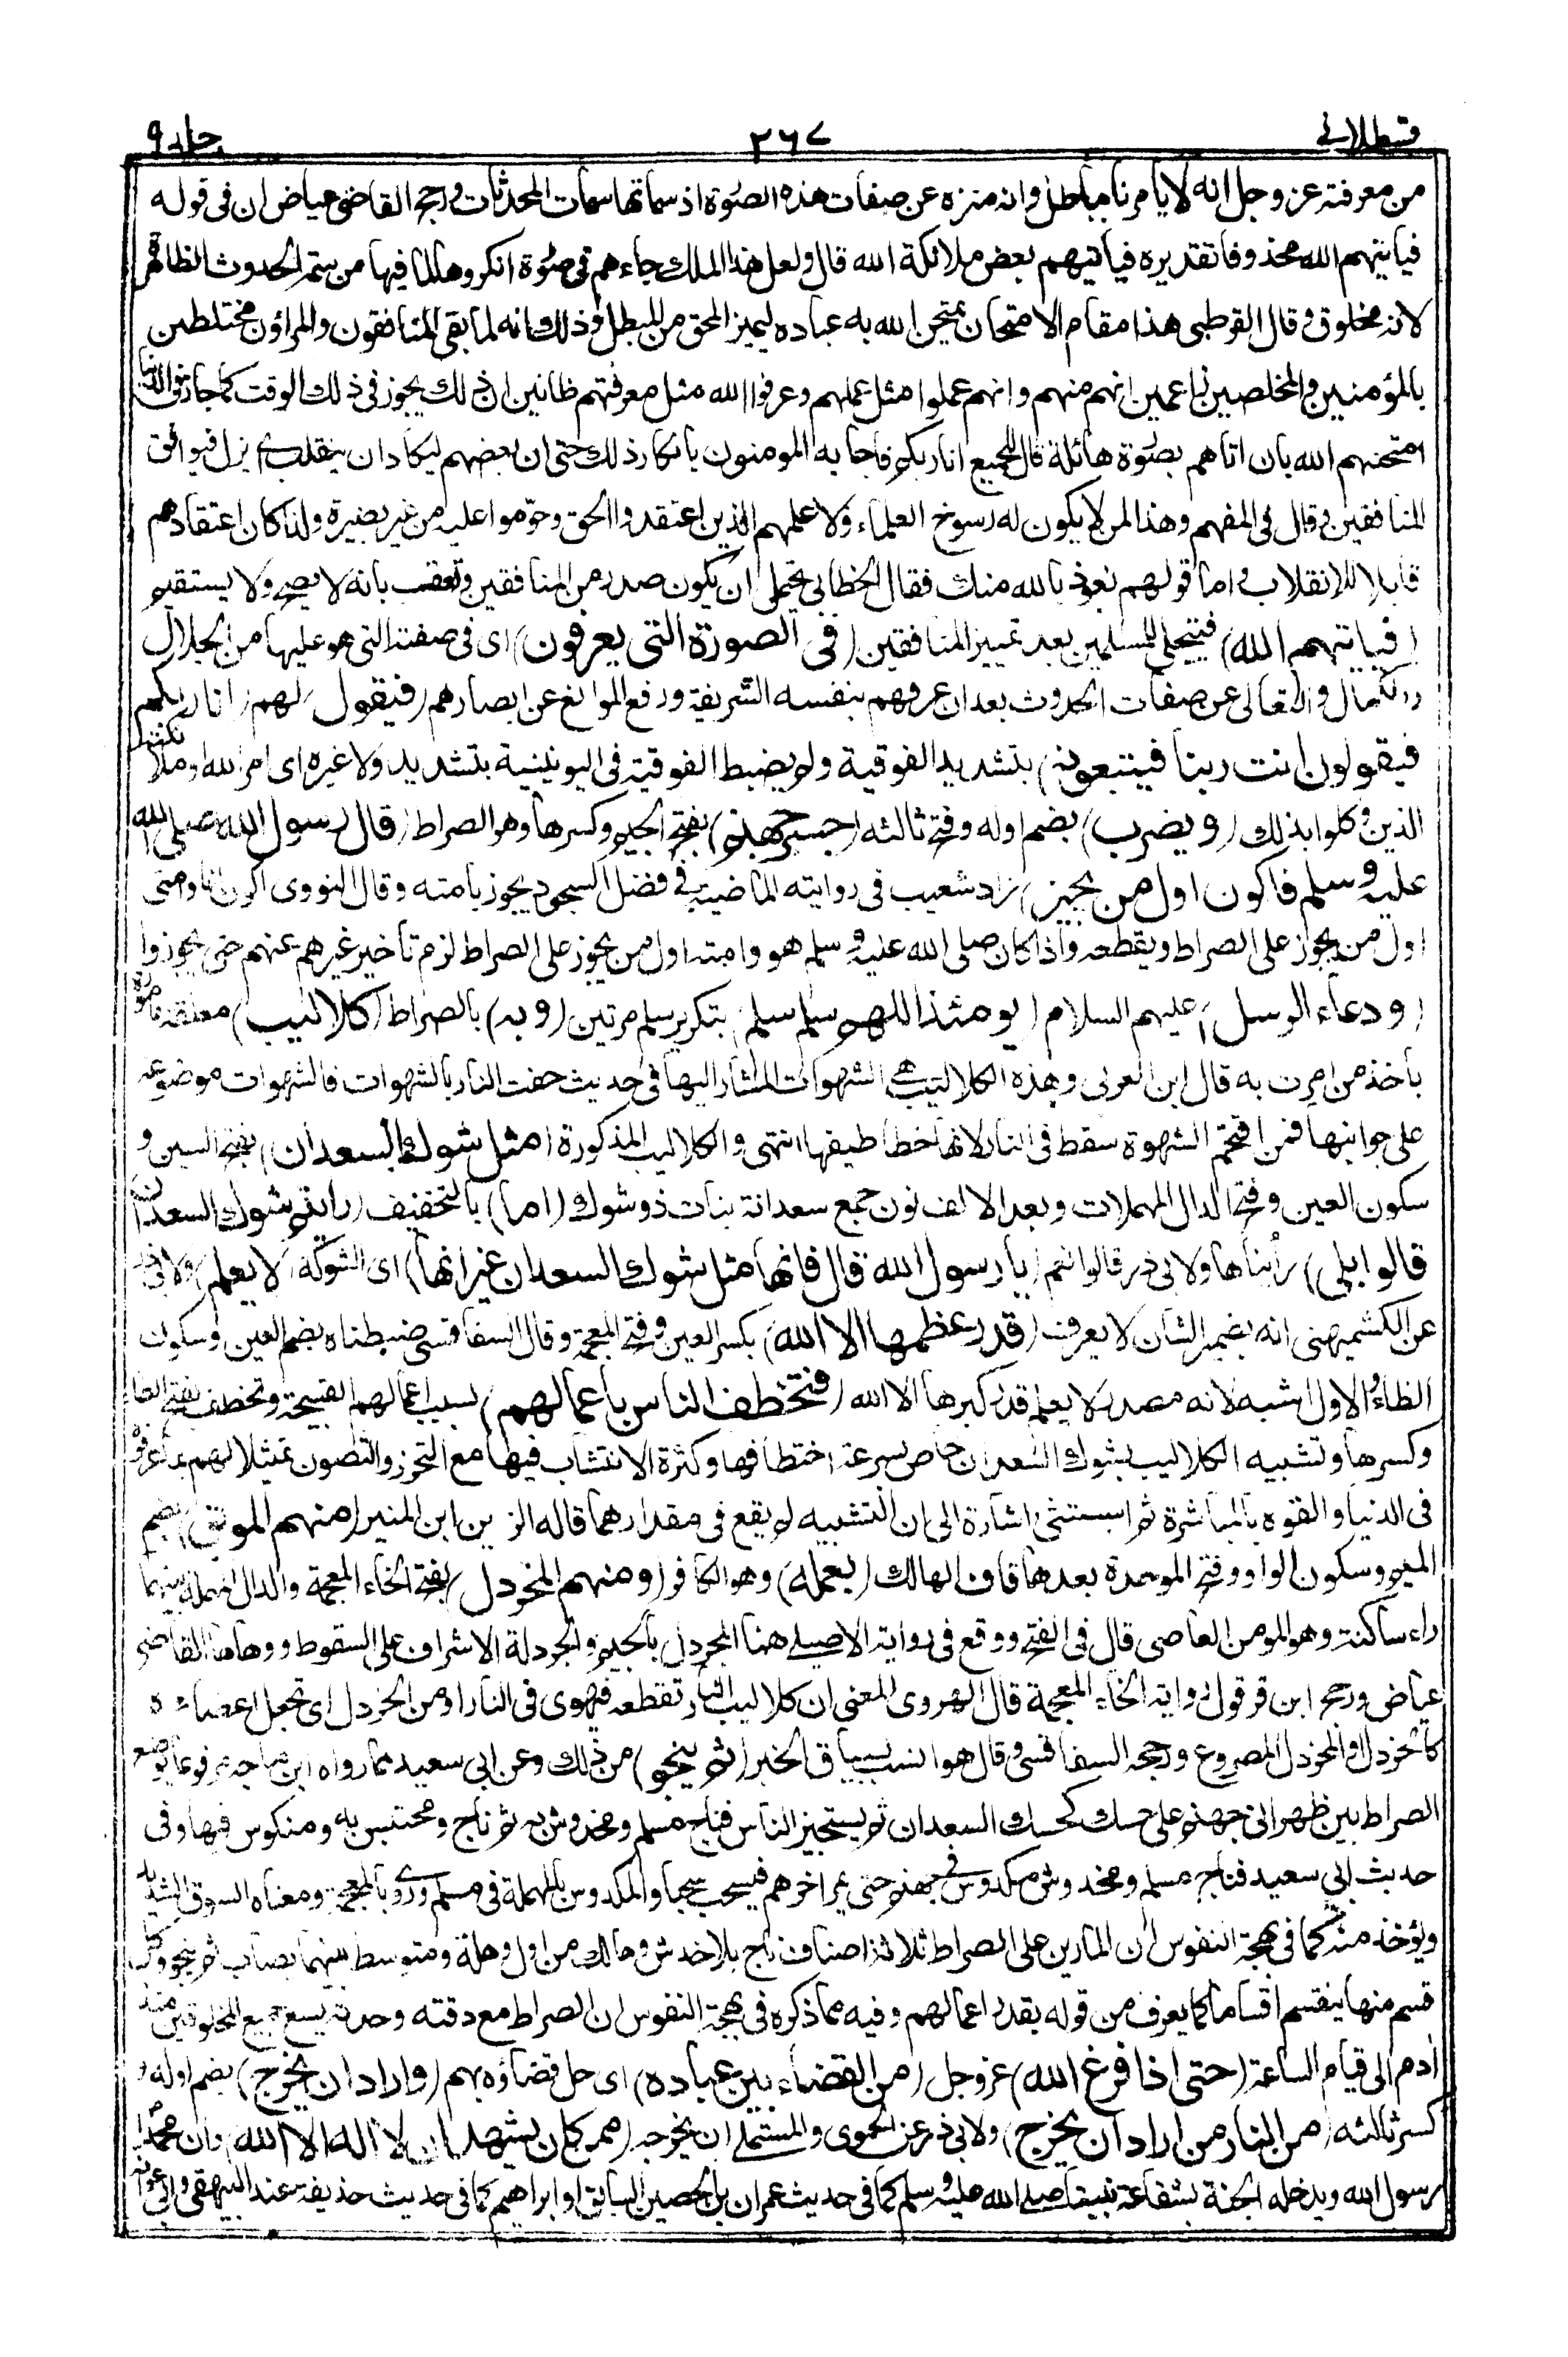 قسطلانی ٣٦٧ جلد ٩
من معرفته عز وجل انه لا يامرنا بباطل وانه منزه عن صفات هذه الصورة اذ سماتها سمات المحدثات ورجح القاضي عياض ان فى قوله
فياتيهم الله محذوفا تقديره فياتيهم بعض ملائكة الله قال ولعل هذا الملك جاءهم فى صورة انكروها لما فيها من سمة الحدوث الظاهر
لانه مخلوق وقال القرطبى هذا مقام الامتحان يمتحن الله به عباده ليميز المحق من المبطل وذلك انه لما بقى المنافقون والمراؤن مختلطين
بالمؤمنين والمخلصين زاعمين انهم منهم وانهم عملوا مثل عملهم وعرفوا الله مثل معرفتهم ظانين ان ذلك يجوز فى ذلك الوقت كما جاز فى الدنيا
امتحنهم الله بان اتاهم بصورة هائلة قال للجميع انا ربكم فاجابه المومنون بانكار ذلك حتى ان بعضهم ليكاد ان ينقلب اى يزل فيوافق
المنافقين وقال فى المفهم وهذا لمن لم يكون له رسوخ العلماء ولا علمهم الذين اعتقدوا الحق وحوموا عليه من غير بصيرة ولذا كان اعتقادهم
قابلا للانقلاب واما قولهم نعوذ بالله منك فقال الخطابى يحتمل ان يكون صدر من المنافقين وتعقب بانه لا يصح ولا يستقيم
(فياتيهم الله) فيتجلى للمسلمين بعد تمييز المنافقين (فى الصورة التى يعرفون) اى فى صفته التى هو عليها من الجلال
والكمال والتعالى عن صفات الحدوث بعد ان عرفهم بنفسه الشريفة ورفع الموانع عن ابصارهم (فيقول) لهم (انا ربكم
فيقولون انت ربنا فيتبعونه) بتشديد الفوقية ولم يضبط الفوقية فى اليونينية بتشديد ولا غيره اى امر الله او ملائكته
الذين وكلوا بذلك (ويضرب) بضم اوله وفتح ثالثه (جسر جهنم) بفتح الجيم وكسرها وهو الصراط (قال رسول الله صلى الله
عليه وسلم فاكون اول من يجيز) زاد شعيب فى روايته الماضية فى فضل السجود يجوز بامته وقال النووى اكون انا وامتى
اول من يجوز على الصراط ويقطعه واذا كان صلى الله عليه وسلم هو وامته اول من يجوز على الصراط لزم تاخير غيرهم عنهم حتى يجوزوا
(ودعاء الرسل) عليهم السلام (يومئذ اللهم سلم سلم) بتكرير سلم مرتين (وبه) بالصراط (كلاليب) معلقة مامورة
باخذ من امرت به قال ابن العربى وهذه الكلاليب هى الشهوات المشار اليها فى حديث حفت النار بالشهوات فالشهوات موضوعة
على جوانبها فمن اقتحم الشهوة سقط فى النار لانها خطاطيفها انتهى والكلاليب المذكورة (مثل شوك السعدان) بفتح السين و
سكون العين وفتح الدال المهملات وبعد الالف نون جمع سعدانة نبات ذو شوك (اما) بالتخفيف (رايتم شوك السعدان
قالوا بلى) رأيناها ولابى ذر قالوا نعم (يا رسول الله قال فانها مثل شوك السعدان غير انها) اى الشوكة (لا يعلم) ولابى ذر
عن الكشميهنى انه بضمير الشان لا يعرف (قدر عظمها الا الله) بكسر العين وفتح المعجمة وقال السفاقسى ضبطناه بضم العين وسكون
الظاء والاول اشبه لانه مصدر لا يعلم قدر كبرها الا الله (فتخطف الناس باعمالهم) بسبب اعمالهم القبيحة وتخطف بفتح الطاء
وكسرها وتشبيه الكلاليب بشوك السعدان خاص بسرعة اختطافها وكثرة الانتشاب فيها مع التحرز والتصون تمثيلا لهم بما عرفوه
فى الدنيا والقوه بالمباشرة ثم استثنى اشارة الى ان التشبيه لم يقع فى مقدارهما قاله الزين ابن المنير (منهم الموبق) بضم
الميم وسكون الواو وفتح الموحدة بعدها قاف الهالك (بعمله) وهو الكافر (ومنهم المخردل) بفتح الخاء المعجمة والدال المهملة بينهما
راء ساكنة وهو المومن العاصى قال فى الفتح ووقع فى رواية الاصيلى هنا المجردل بالجيم والجردلة الاشراف على السقوط ووهاها القاضى
عياض ورجح ابن قرقول رواية الخاء المعجمة قال الهروى المعنى ان كلاليب النار تقطعه فيهوى فى النار او من الخردل اى تجعل اعضاءه
كالخردل او المخردل المصروع ورجحه السفاقسى وقال هو انسب بسياق الخبر (ثم ينجو) من ذلك وعن ابى سعيد مما رواه ابن ماجه مرفوعا يوضع
الصراط بين ظهرانى جهنم على حسك كحسك السعدان ثم يستجيز الناس فناج مسلم ومخدوش به ثم ناج ومحتبس به ومنكوس فيها وفى
حديث ابى سعيد فناج مسلم ومخدوش مكدوس فى جهنم حتى يمر اخرهم فيسحب سحبا والمكدوس بالمهملة فى مسلم وروى بالمعجمة ومعناه السوق الشديد
ويؤخذ منه كما فى بهجة النفوس ان المارين على الصراط ثلاثة اصناف ناج بلا خدش وهالك من اول وهلة ومتوسط بينهما يصاب ثم ينجو وكل
قسم منها ينقسم اقساما كما يعرف من قوله بقدر اعمالهم وفيه مما ذكره فى بهجة النفوس ان الصراط مع دقته وحدته يسع جميع المخلوقين منذ
ادم الى قيام الساعة (حتى اذا فرغ الله) عز وجل (من القضاء بين عباده) اى حل قضاؤه بهم (واراد ان يخرج) بضم اوله و
كسر ثالثه (من النار من اراد ان يخرج) ولابى ذر عن الحموى والمستملى ان يخرجه (ممن كان يشهد ان لا اله الا الله) وان محمدا
رسول الله ويدخله الجنة بشفاعة نبينا صلى الله عليه وسلم كما فى حديث عمران بن الحصين السابق او ابراهيم كما فى حديث حذيفة عند البيهقى وابى عوانة